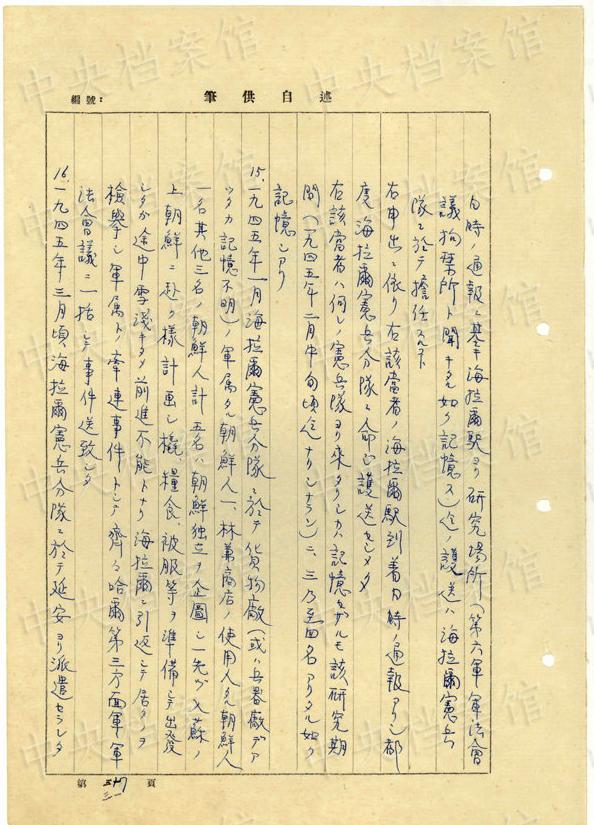 編號：
述自供筆
日時ノ通報ニ基キ海拉爾駅ヨリ研究場所（第六軍軍法會
議拘禁所ト聞キタル如ク記憶ス）迄ノ護送ハ海拉爾憲兵
隊ニ於テ擔任スルト
右申出ニ依リ右該當者ノ海拉爾駅到着日時ノ通報アリシ都
度海拉爾憲兵分隊ニ命シ護送セシメタ
右該當者ハ何レノ憲兵隊ヨリ来タリシカハ記憶セザルモ該研究期
間（一九四五年二月中旬頃迄ナリシナラン）ニ、三乃至四名アリタル如ク
記憶シアリ
15.一九四五年一月海拉爾憲兵分隊ニ於テ貨物廠（或ハ兵器廠デア
ツタカ記憶不明）ノ軍属タル朝鮮人一、林兼商店ノ使用人タル朝鮮人
一名其他三名ノ朝鮮人計五名ハ朝鮮独立ヲ企圖シ一先ヅ入蘇ノ
上朝鮮ニ赴ク様計画シ橇、糧食、被服等ヲ準備シテ出發
シタガ途中雪深キタメ前進不能トナリ海拉爾ニ引返シテ居タノヲ
檢擧シ軍属トノ牽連事件トシテ齊々哈爾第三方面軍軍
法會議ニ一括シテ事件送致シタ
16.一九四五年三月頃海拉爾憲兵分隊ニ於テ延安ヨリ派遣セラレタ
第 頁
中央档案馆